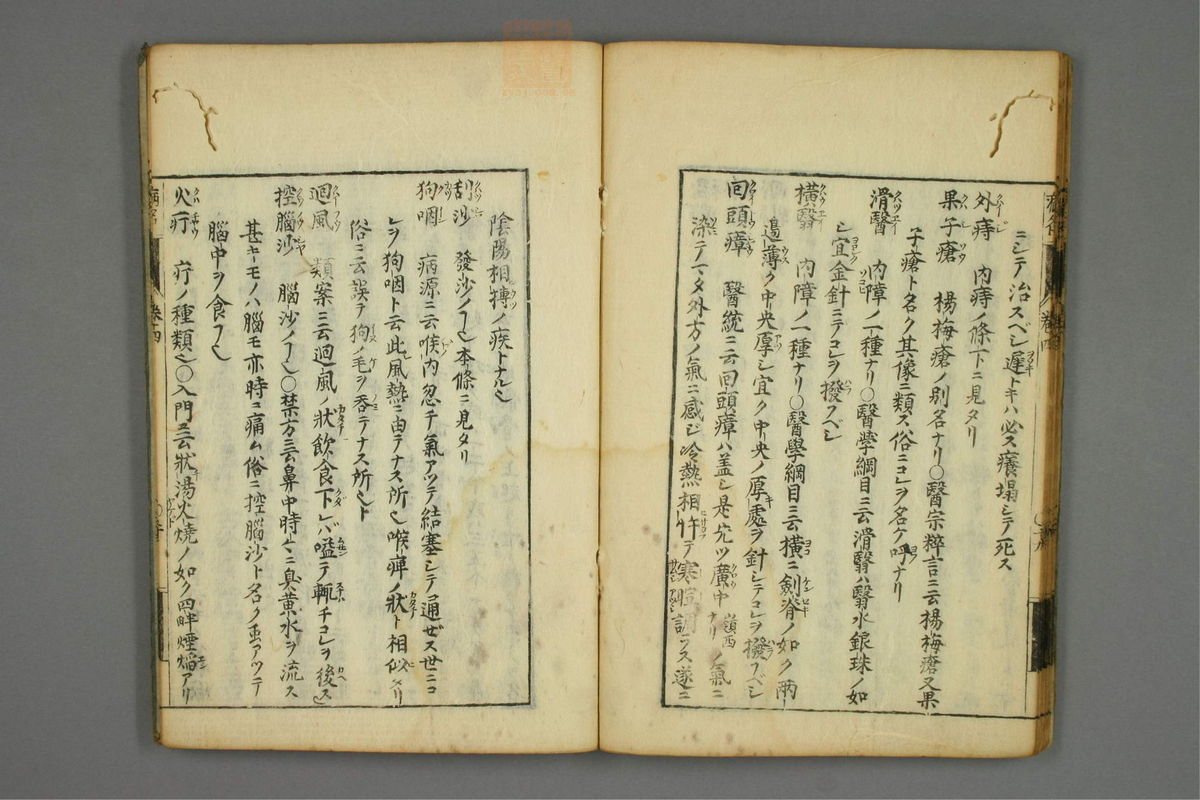 ニシテ治スベシ遲トキハ必ス癢塌シテ死ス
外痔 内痔ノ條下ニ見タリ
果子瘡 楊梅瘡ノ別名ナリ〇醫宗粹言ニ云楊梅瘡又果
子瘡ト名ク其像ニ類ス俗ニコレヲ名ケ呼ナリ
滑翳 内障ノ一種ナリ〇醫學綱目ニ云滑翳ハ翳水銀珠ノ如
シ宜金針ニテコレヲ撥スベシ
橫翳 内障ノ一種ナリ〇醫學綱目ニ云橫ニ劔脊ノ如ク兩
邉薄ク中央厚シ宜ク中央ノ厚キ處ヲ針シテコレヲ撥スベシ
回頭瘴 醫統ニ云回頭瘴ハ盖シ是先ツ廣中嶺西ナリノ氣ニ
染テマタ外方ノ氣ニ感ジ冷熱相忤テ寒暄調ラス遂ニ
陰陽相搏ノ疾トナル也
刮沙 發沙ノ也本條ニ見タリ
狗咽 病源ニ云喉内忽チ氣アツテ結塞シテ通ゼス世ニコ
レヲ狗咽ト云此風熱ニ由テナス所也喉痺ノ狀ト相似タリ
俗ニ云誤テ狗ノ毛ヲ吞テナス所也ト
迴風 類案ニ云迴風ノ狀飲食下レバ嗌テ輒チコレヲ後ス
控腦沙 腦沙ノ也〇禁方ニ云鼻中時々ニ臭黄水ヲ流ス
甚キモノハ腦モ亦時ニ痛ム俗ニ控腦沙ト名ク虫アツテ
腦中ヲ食フ也
火疔 疔ノ種類也〇入門ニ云狀湯火燒ノ如ク四畔煙焰アリ